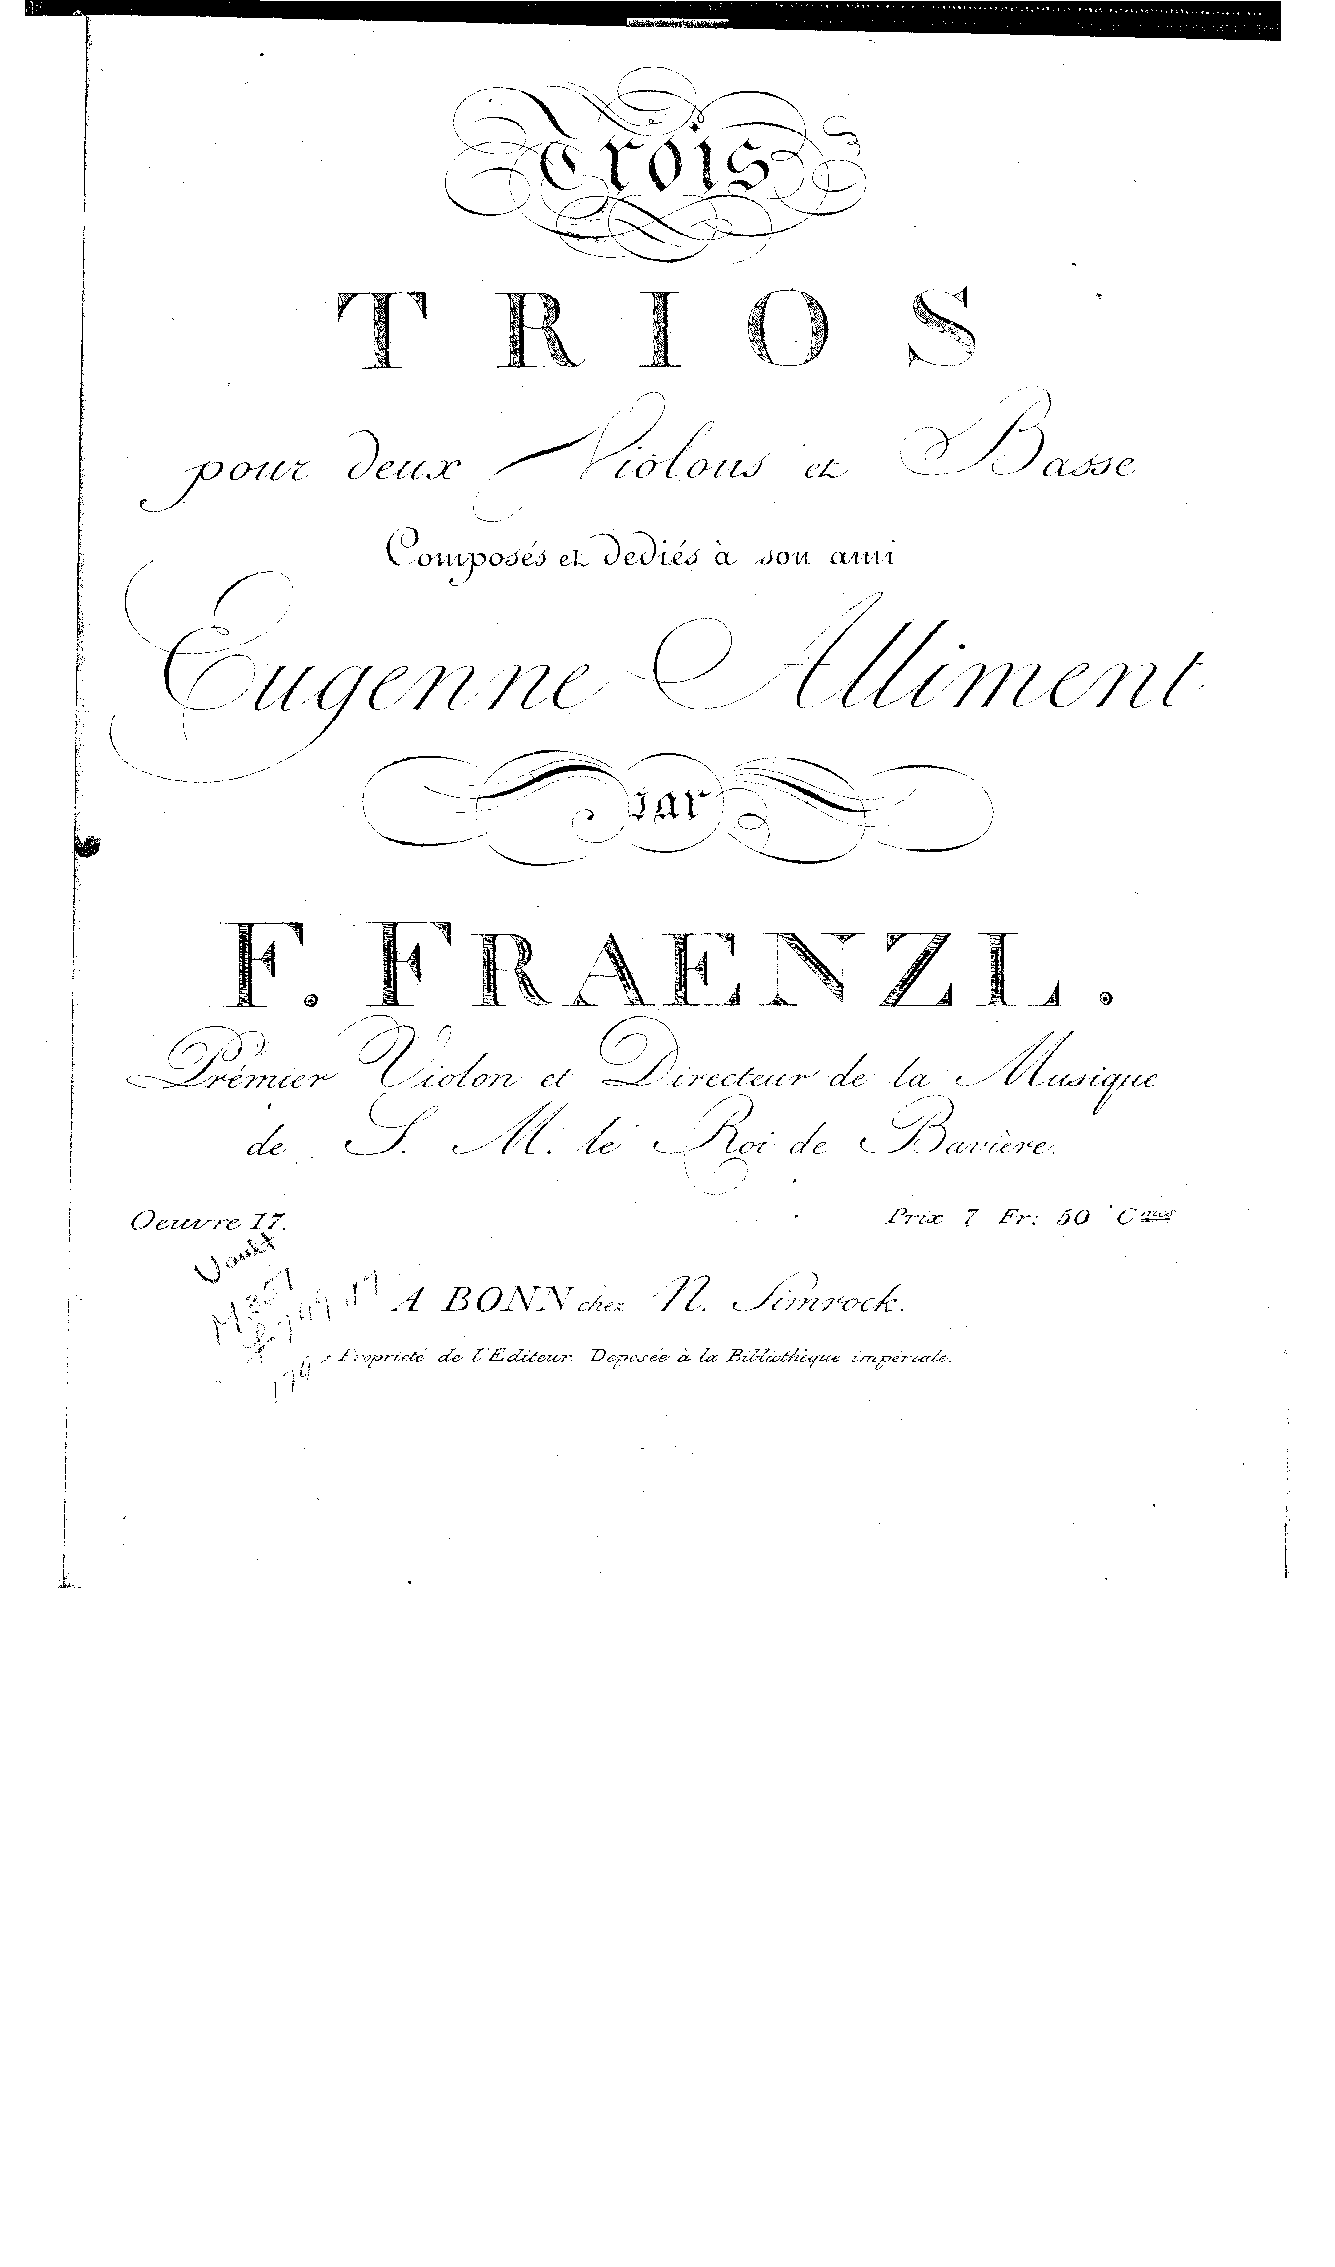 Trois
TRIOS
pour deux Violons et Basse
Composés et dediés à son ami
Eugenne Alliment
par
F. FRAENZL.
Prémier Violon et Directeur de la Musique
de S. M. le Roi de Bavière.
Oeuvre 17.
Prix 7 Fr: 50 Cmes
Vault
A BONN chez N. Simrock.
Propriété de l'Editeur. Deposée à la Bibliothèque impériale.